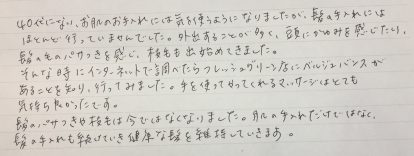 40代になり、お肌のお手入れには気を使うようになりましたが、髪の手入れには
ほとんど行っていませんでした。外出することが多く、頭にかゆみを感じたり、
髪の毛のパサつきを感じ、枝毛も出始めてきました。
そんな時にインターネットで調べたらフレッシュグリーン店にベルジュバンスが
あることを知り、行ってみました。手を使ってやってくれるマッサージはとても
気持ち良かったです。
髪のパサつきや枝毛は今ではなくなりました。肌の手入れだけではなく、
髪の手入れも続けていき健康な髪を維持していきます。